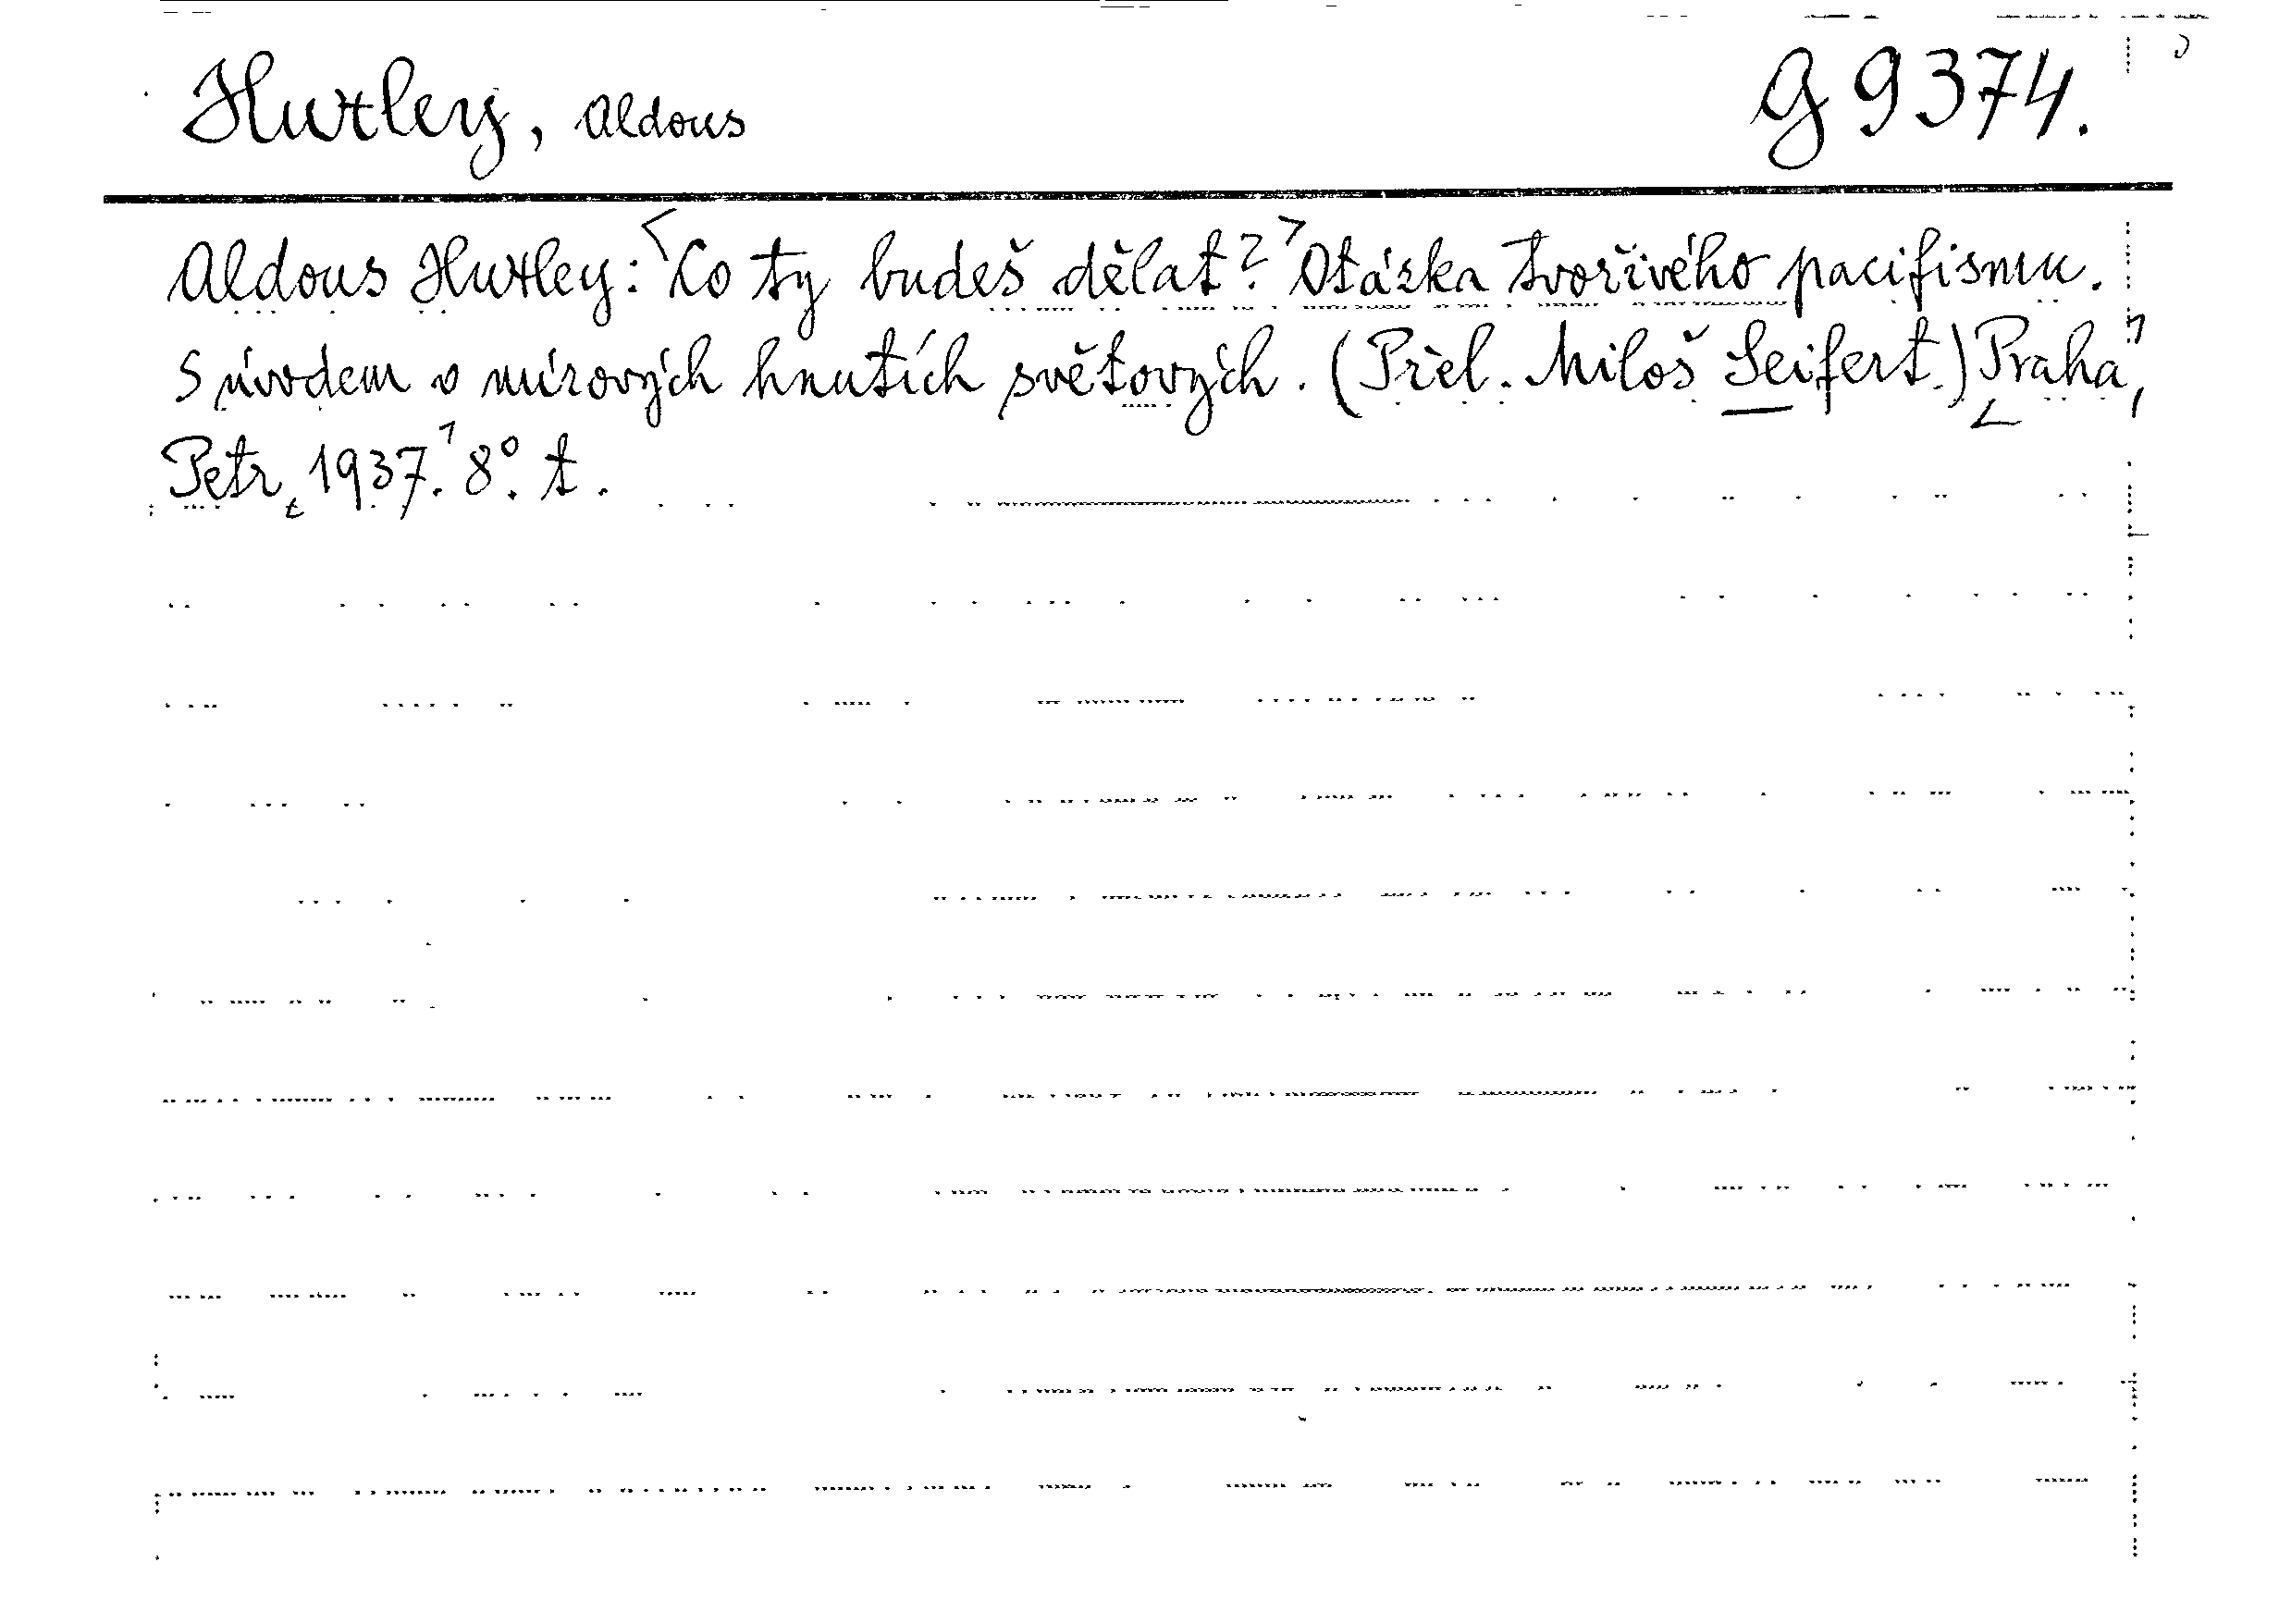 Huxley, Aldous G 9374.
Aldous Huxley: <Co ty budeš dělat?> Otázka tvořivého pacifismu.
S úvodem o mírových hnutích světových. (Přel. Miloš Seifert.) Praha,
Petr, 1937. 8°. t.